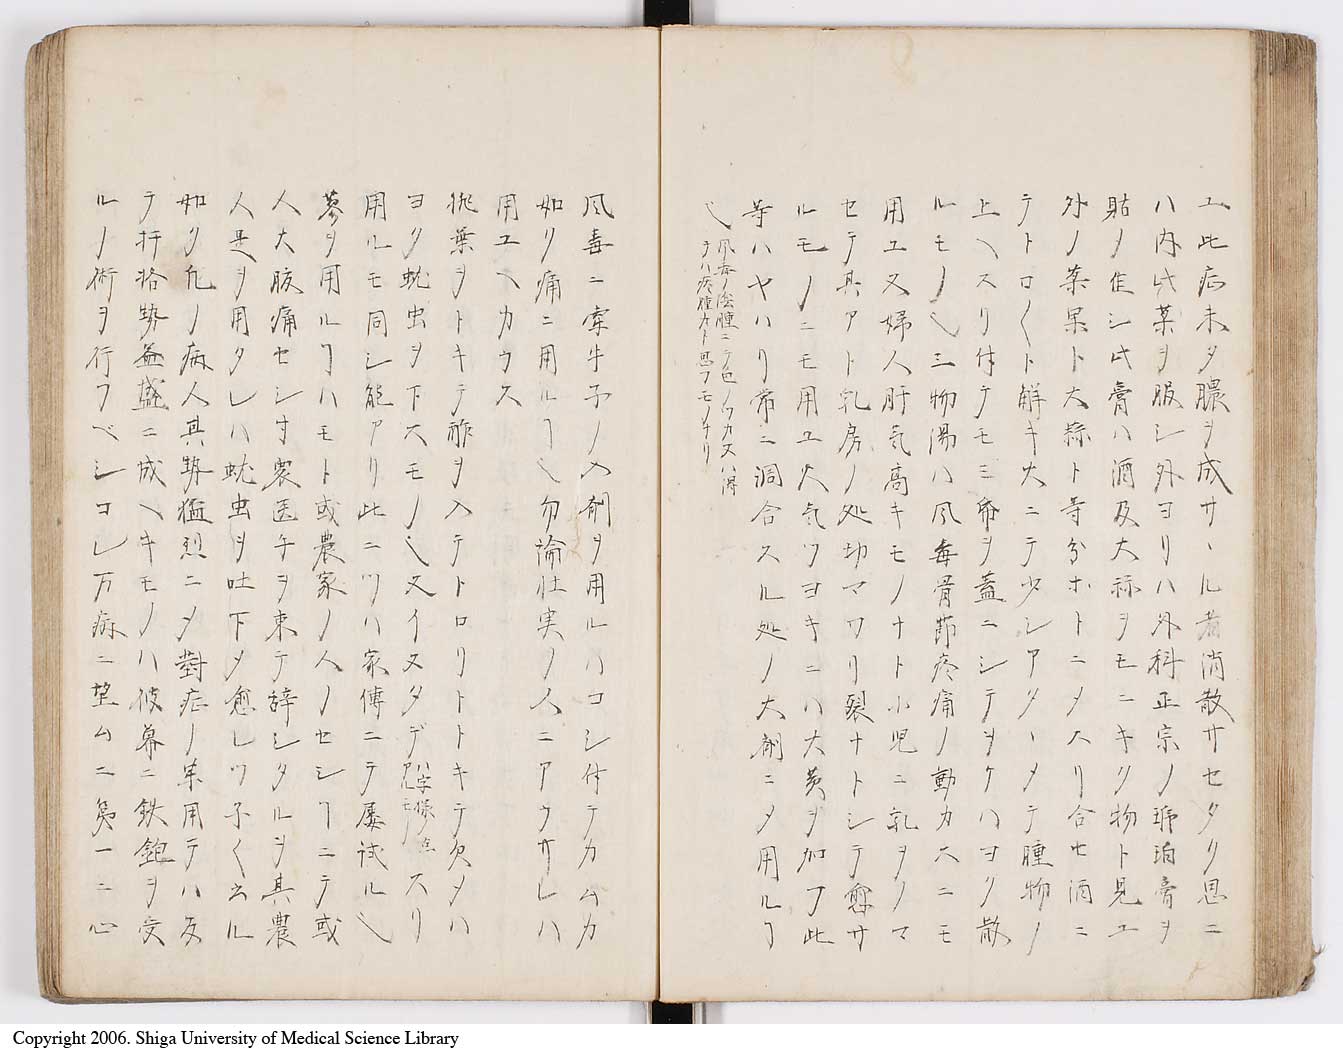 ユ此症未タ膿ヲ成サヽル者消散サセタリ思ニ
ハ内此薬ヲ服シ外ヨリハ外科正宗ノ琥珀膏ヲ
貼ノ佳シ此膏ハ酒及大蒜ヲモニキリ物ト見ユ
外ノ薬末ト大蒜ト等分ホトニメスリ合セ酒ニ
テトロ〱ト解キ火ニテ少シアタヽメテ腫物ノ
上ヘスリ付テモミ帋ヲ蓋ニシテヲケハヨク散
ルモノ也三物湯ハ風毒骨節疼痛ノ動カスニモ
用ユ又婦人肝気高キモノナト小児ニ乳ヲノマ
セテ其アト乳房ノ処切マワリ裂ナトシテ愈サ
ルモノニモ用ユ火気ツヨキニハ大黄ヲ加フ此
等ハヤハリ常ニ洞合スル処ノ大剤ニメ用ルヿ
也 風毒ノ陰腫ニテ色ノワカヌハ得
テハ疼腫カト思フモノナリ
風毒ニ牽牛子ノ入剤ヲ用ルハコシ付テカムカ
如リ痛ニ用ルヿ也勿論壮実ノ人ニアラサレハ
用ユヘカラス
桃葉ヲトキテ酢ヲ入テトロリトトキテ灸メハ
ヨク蚘虫ヲ下スモノ也又イヌタデ ハ字様ノ点
アルモノ スリ
用ルモ同シ能アリ此ニツハ家傳ニテ屡試ル也
蓼ヲ用ルヿハモト或農家ノ人ノセシヿニテ或
人大腹痛セシ寸衆医手ヲ束テ辞シタルヲ其農
人是ヲ用タレハ蚘虫ヲ吐下メ愈レツ子〱云ル
如ク凡ノ病人其勢猛烈ニメ對症ノ薬用テハ反
テ扞格勢益盛ニ成ヘキモノハ彼幕ニ鉄鉋ヲ受
ルノ術ヲ行フベシコレ万病ニ望ムニ第一ニ心
Copyright 2006. Shiga University of Medical Science Library